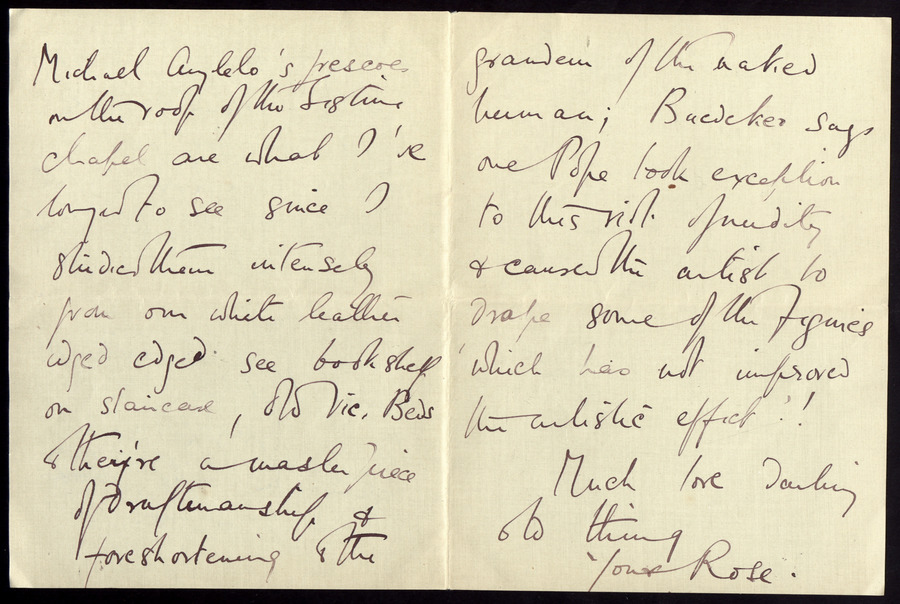 Michael Anglelo's frescoes
on the roof of the Sistine
chapel are what I've
longed to see since I
studied them intensely
from our white leather
edged see bookshelf
on staircase, Old Vic. Beds
& they're a master piece
of Draftmanship &
foreshortening & the
grandeur of the naked
human; Baedeker says
one Pope took exception
to this riot of nudity
& caused the artist to
drape some of the Figures
'which has not improved
the artistic effect'!
Much love Darling
old thing
Your Rose.